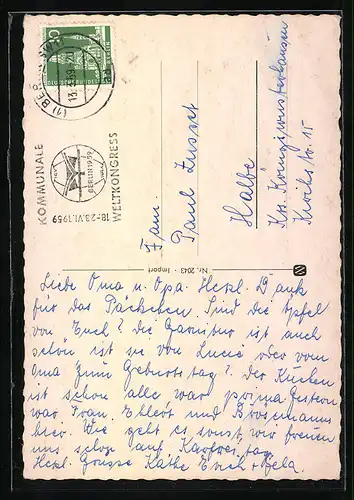 KOMMUNALE
WELTKONGRESS
BERLIN 1959
18.-23.VI.1959
Fam.
Paul
Halbe
Krs. Königswusterhausen
Nr. 2043 · Import
Liebe Oma u. Opa. Herzl. Dank
für das Päckchen. Sind die Äpfel
von Euch? Die Garnitur ist auch
schön ist sie von Lucie oder von
Oma zum Geburtstag? Der Kuchen
ist schon alle war prima. Gestern
war Frau Ehlert und
hier. Wie geht es sonst, wir freuen
uns schon auf Karfreitag
Herzl. Grüsse Käthe Erich + Bela.